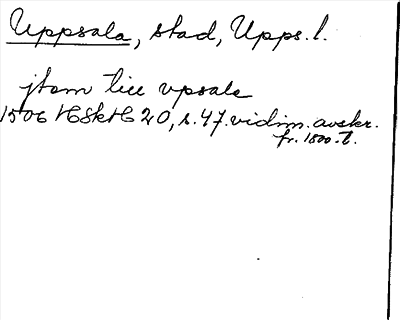 Uppsala, stad, Upps. l.
jtem tiil vpsale
1506 HSkH 20, s. 47. vidim. avskr.
fr. 1500-t.